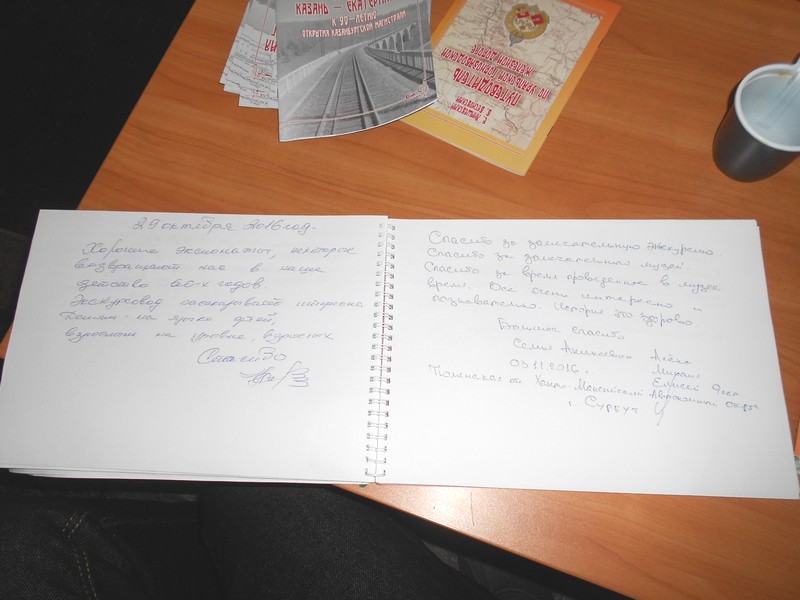 КАЗАНЬ – ЕКАТЕРИН
К 90-ЛЕТИЮ
ОТКРЫТИЯ КАЗАНБУРГСКОЙ МАГИСТРАЛИ
ПУТЕВОДИТЕЛЬ
29 октября 2016 год.
Хорошие экспонаты, некоторые
возвращают нас в наше
детство 60-х годов.
Экскурсовод рассказывает интересно
Детям - на языке детей,
взрослым на уровне взрослых
Спасибо
Спасибо за замечательную экскурсию
Спасибо за замечательный музей.
Спасибо за время проведенное в музее
время. Все очень интересно и
познавательно. История это здорово
Большое спасибо
Семья Алёна
03.11.2016. Михаил
Елисей
Тюменская об Ханты-Мансийский Автономный округ
г. Сургут